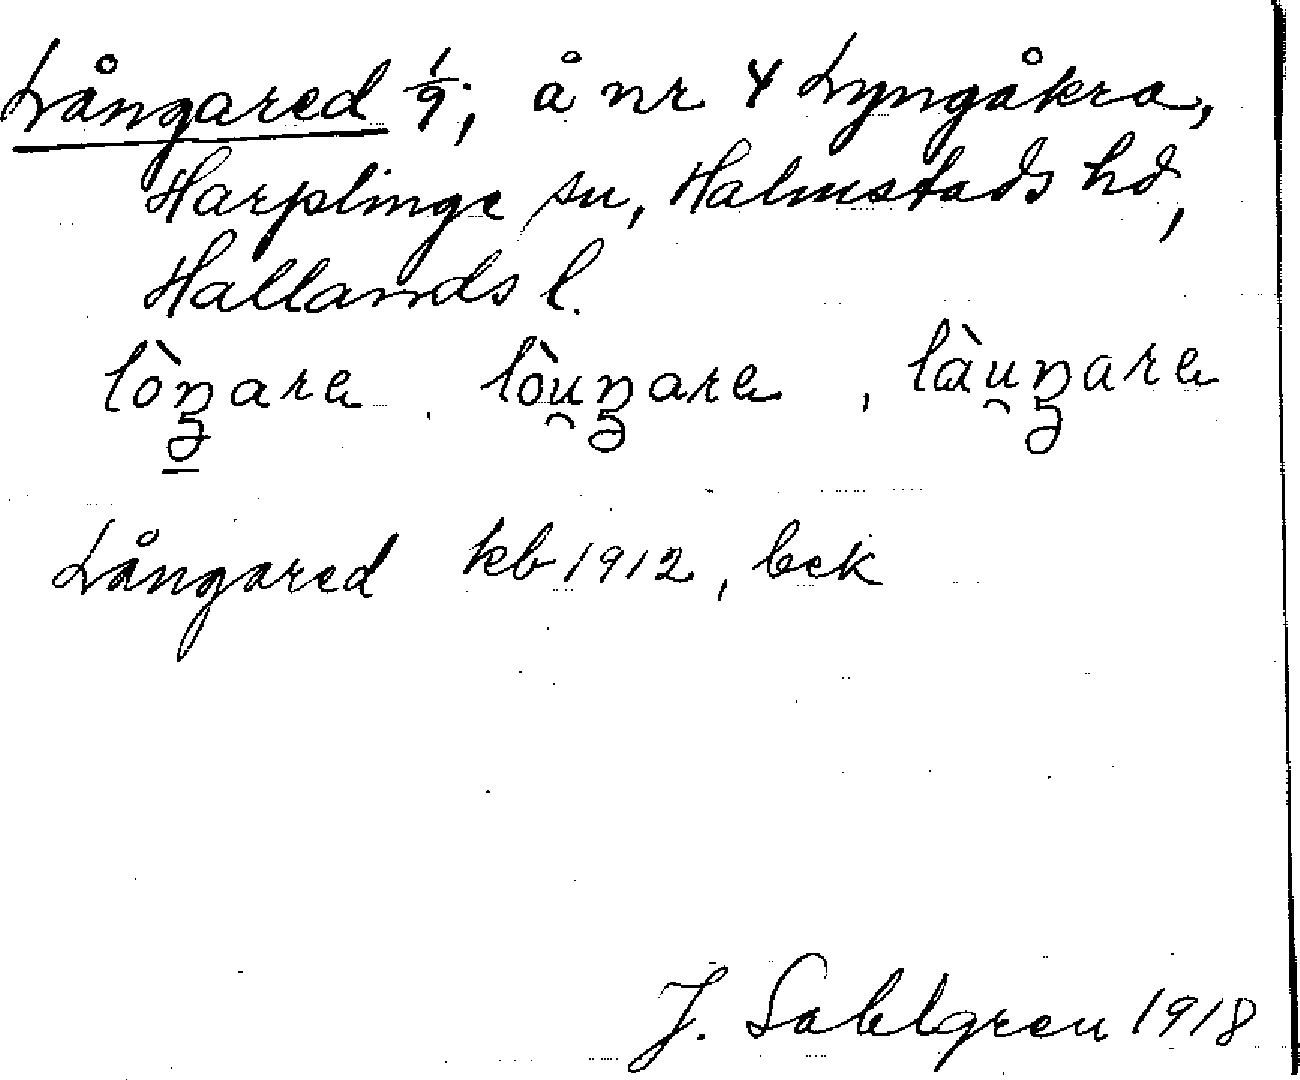 Långared 1/9, å nr 4 Lyngåkra,
Harplinge sn, Halmstads hd,
Hallands l.
lòŋare, lòu̯ŋare, làu̯ŋare
Långared kb 1912, bek
J. Sahlgren 1918